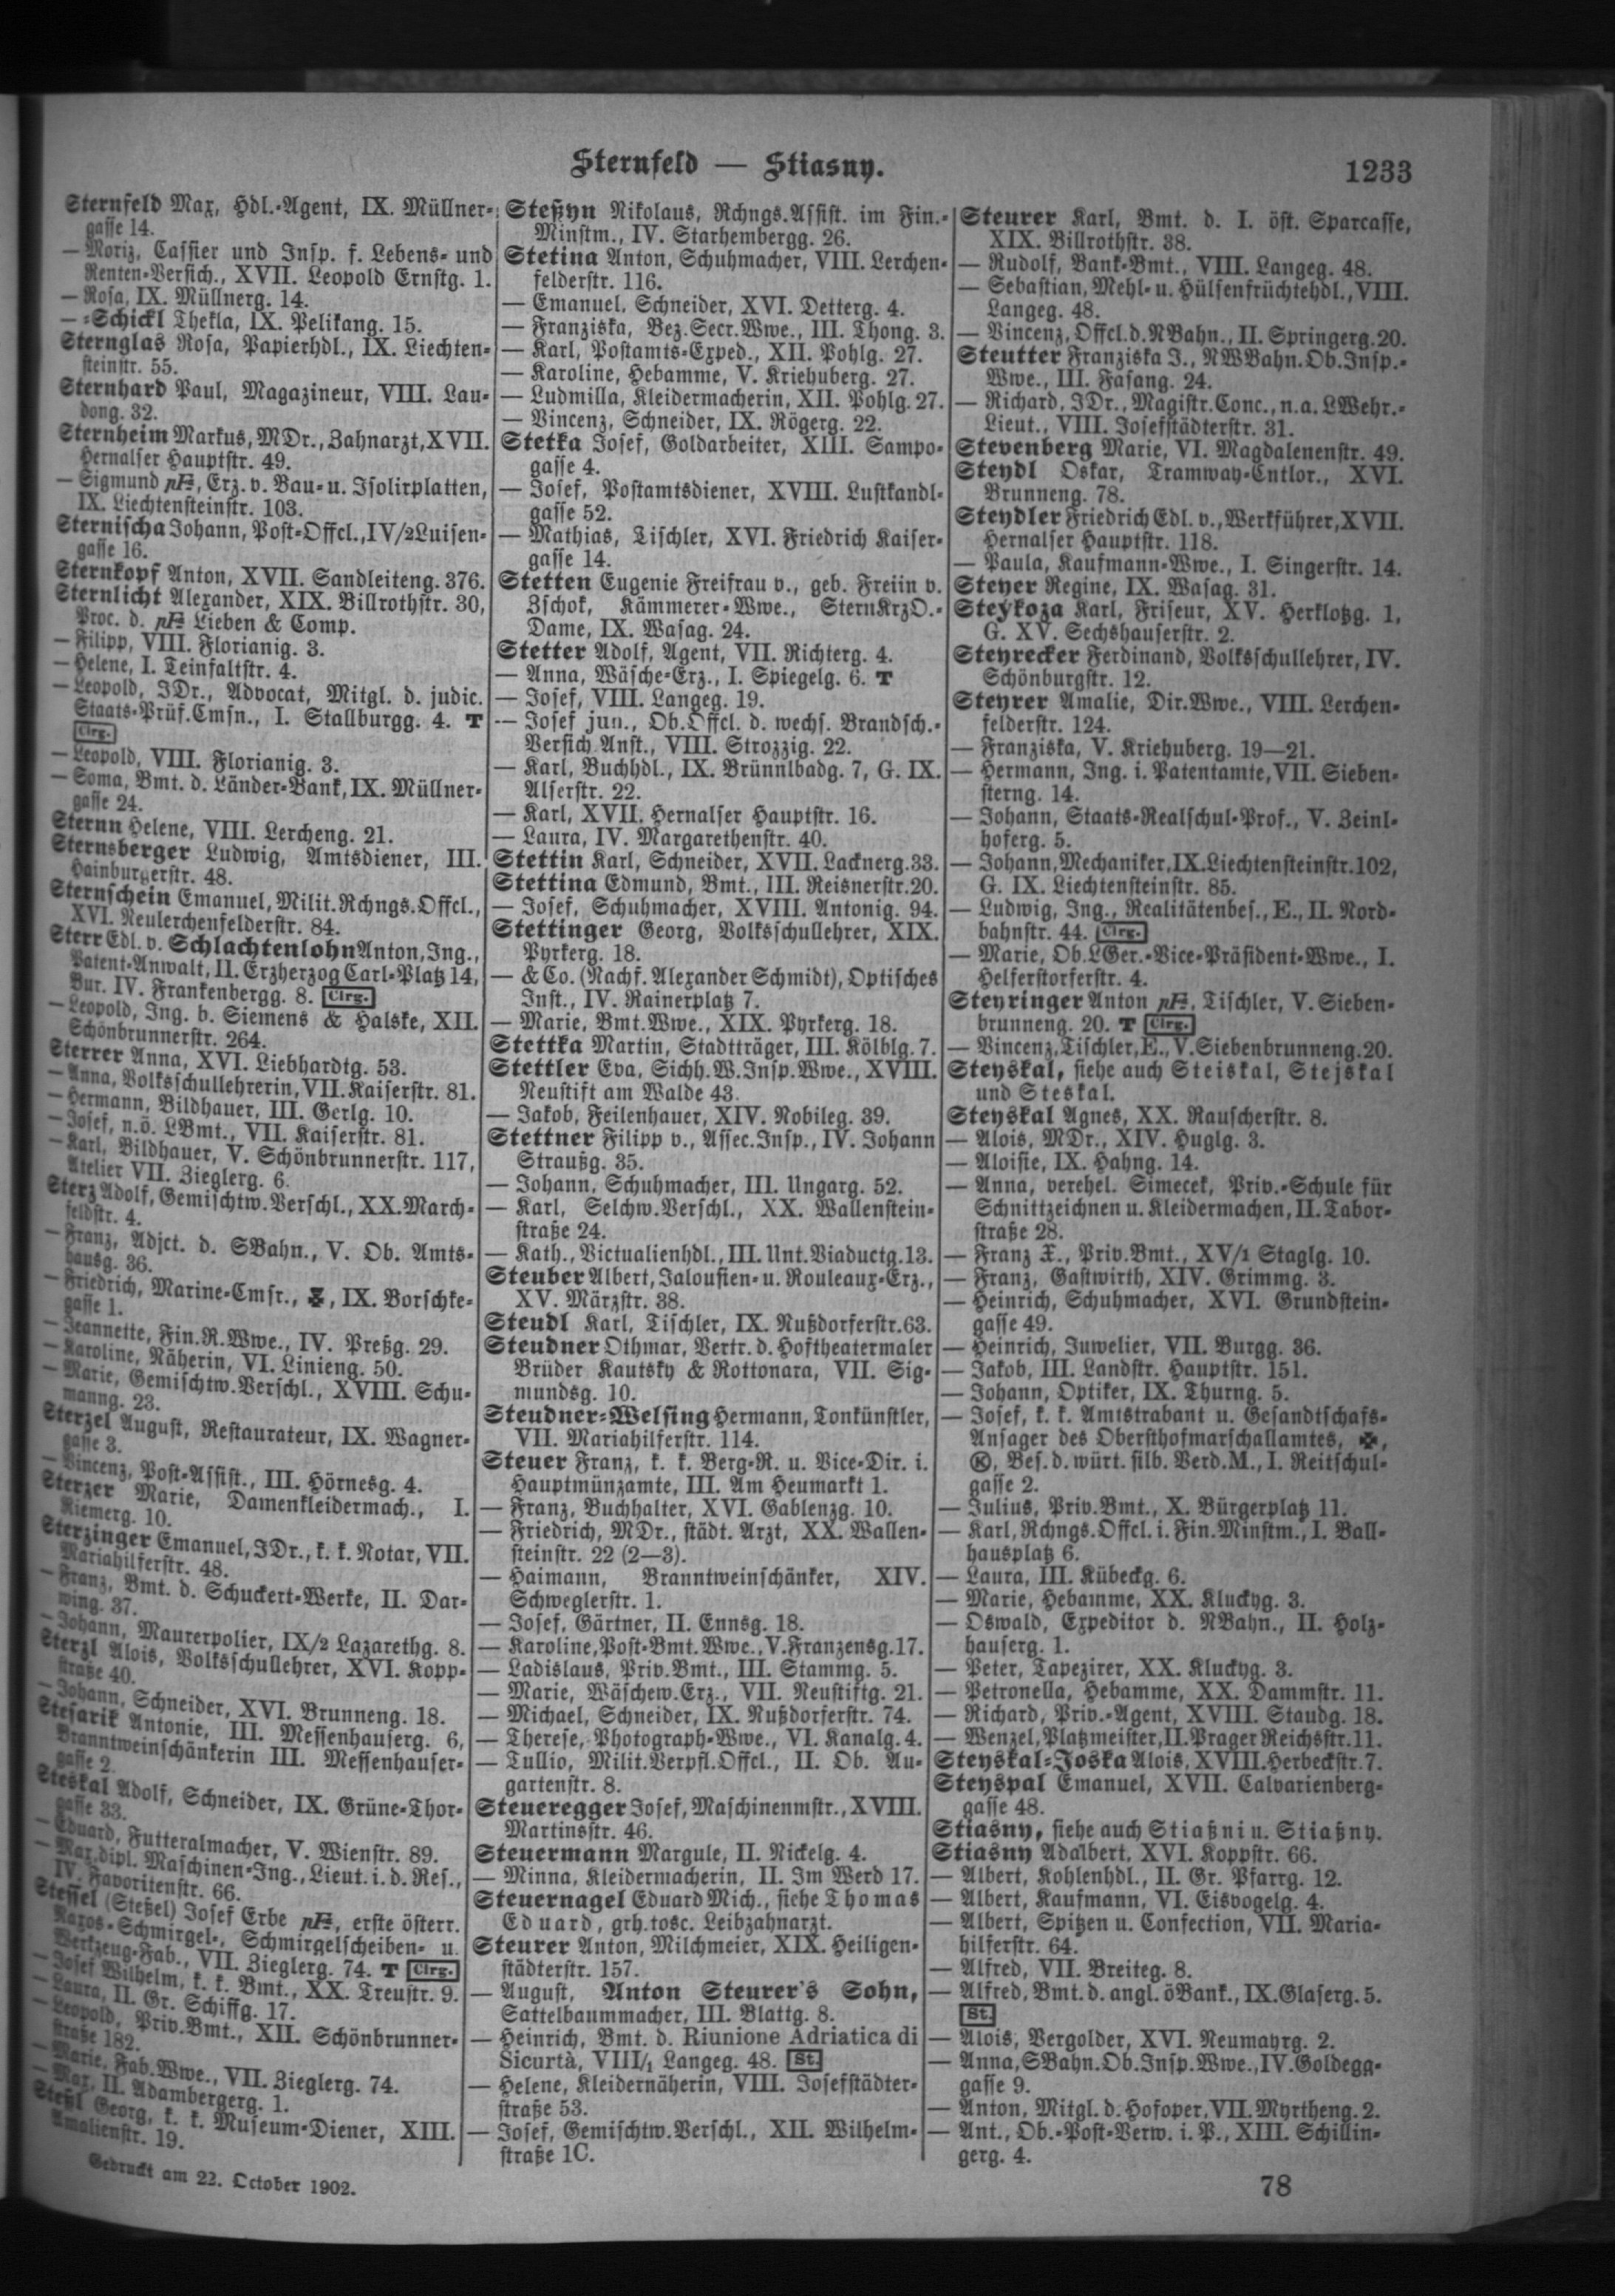 Sternfeld — Stiasny.
1233
Sternfeld Max, Hdl.-Agent, IX. Müllner-
gasse 14.
— Moriz, Cassier und Insp. f. Lebens- und
Renten-Versich., XVII. Leopold Ernstg. 1.
— Rosa, IX. Müllnerg. 14.
— -Schickl Thekla, IX. Pelikang. 15.
Sternglas Rosa, Papierhdl., IX. Liechten-
steinstr. 55.
Sternhard Paul, Magazineur, VIII. Lau-
dong. 32.
Sternheim Markus, MDr., Zahnarzt, XVII.
Hernalser Hauptstr. 49.
— Sigmund, Erz. v. Bau- u. Isolirplatten,
IX. Liechtensteinstr. 103.
Sternischa Johann, Post-Offcl., IV/2 Luisen-
gasse 16.
Sternkopf Anton, XVII. Sandleiteng. 376.
Sternlicht Alexander, XIX. Billrothstr. 30,
Proc. d. Lieben & Comp.
— Filipp, VIII. Florianig. 3.
— Helene, I. Teinfaltstr. 4.
— Leopold, JDr., Advocat, Mitgl. d. judic.
Staats-Prüf.Cmsn., I. Stallburgg. 4. T
Clrg.
— Leopold, VIII. Florianig. 3.
— Soma, Bmt. d. Länder-Bank, IX. Müllner-
gasse 24.
Sternn Helene, VIII. Lercheng. 21.
Sternsberger Ludwig, Amtsdiener, III.
Hainburgerstr. 48.
Sternschein Emanuel, Milit.Rchngs.Offcl.,
XVI. Neulerchenfelderstr. 84.
Sterr Edl. v. Schlachtenlohn Anton, Ing.,
Patent-Anwalt, II. Erzherzog Carl-Platz 14,
Bur. IV. Frankenbergg. 8. Clrg.
— Leopold, Ing. b. Siemens & Halske, XII.
Schönbrunnerstr. 264.
Sterrer Anna, XVI. Liebhardtg. 53.
— Anna, Volksschullehrerin, VII. Kaiserstr. 81.
— Hermann, Bildhauer, III. Gerlg. 10.
— Josef, n.ö. LBmt., VII. Kaiserstr. 81.
— Karl, Bildhauer, V. Schönbrunnerstr. 117,
Atelier VII. Zieglerg. 6.
Sterz Adolf, Gemischtw.Verschl., XX. March-
feldstr. 4.
— Franz, Adjct. d. SBahn., V. Ob. Amts-
hausg. 36.
— Friedrich, Marine-Cmsr., IX. Borschke-
gasse 1.
— Jeannette, Fin.R.Wwe., IV. Preßg. 29.
— Karoline, Näherin, VI. Linieng. 50.
— Marie, Gemischtw.Verschl., XVIII. Schu-
manng. 23.
Sterzel August, Restaurateur, IX. Wagner-
gasse 3.
— Vincenz, Post-Assist., III. Hörnesg. 4.
Sterzer Marie, Damenkleidermach., I.
Riemerg. 10.
Sterzinger Emanuel, JDr., k. k. Notar, VII.
Mariahilferstr. 48.
— Franz, Bmt. d. Schuckert-Werke, II. Dar-
wing. 37.
— Johann, Maurerpolier, IX/2 Lazarethg. 8.
Sterzl Alois, Volksschullehrer, XVI. Kopp-
straße 40.
— Johann, Schneider, XVI. Brunneng. 18.
Stesarik Antonie, III. Messenhauserg. 6,
Branntweinschänkerin III. Messenhauser-
gasse 2.
Steskal Adolf, Schneider, IX. Grüne-Thor-
gasse 33.
— Eduard, Futteralmacher, V. Wienstr. 89.
— Max, dipl. Maschinen-Ing., Lieut. i. d. Res.,
IV. Favoritenstr. 66.
Stessel (Steßel) Josef Erbe, erste österr.
Naxos-Schmirgel-, Schmirgelscheiben- u.
Werkzeug-Fab., VII. Zieglerg. 74. T Clrg.
— Josef Wilhelm, k. k. Bmt., XX. Treustr. 9.
— Laura, II. Gr. Schiffg. 17.
— Leopold, Priv.Bmt., XII. Schönbrunner-
straße 182.
— Marie, Fab.Wwe., VII. Zieglerg. 74.
— Max, II. Adambergerg. 1.
Steßl Georg, k. k. Museum-Diener, XIII.
Amalienstr. 19.
Gedruckt am 22. October 1902.
Steßyn Nikolaus, Rchngs.Assist. im Fin.-
Minstm., IV. Starhembergg. 26.
Stetina Anton, Schuhmacher, VIII. Lerchen-
felderstr. 116.
— Emanuel, Schneider, XVI. Detterg. 4.
— Franziska, Bez.Secr.Wwe., III. Thong. 3.
— Karl, Postamts-Exped., XII. Pohlg. 27.
— Karoline, Hebamme, V. Kriehuberg. 27.
— Ludmilla, Kleidermacherin, XII. Pohlg. 27.
— Vincenz, Schneider, IX. Rögerg. 22.
Stetka Josef, Goldarbeiter, XIII. Sampo-
gasse 4.
— Josef, Postamtsdiener, XVIII. Lustkandl-
gasse 52.
— Mathias, Tischler, XVI. Friedrich Kaiser-
gasse 14.
Stetten Eugenie Freifrau v., geb. Freiin v.
Zschok, Kämmerer-Wwe., SternKrzO.-
Dame, IX. Wasag. 24.
Stetter Adolf, Agent, VII. Richterg. 4.
— Anna, Wäsche-Erz., I. Spiegelg. 6. T
— Josef, VIII. Langeg. 19.
— Josef jun., Ob.Offcl. d. wechs. Brandsch.-
Versich Anst., VIII. Strozzig. 22.
— Karl, Buchhdl., IX. Brünnlbadg. 7, G. IX.
Alserstr. 22.
— Karl, XVII. Hernalser Hauptstr. 16.
— Laura, IV. Margarethenstr. 40.
Stettin Karl, Schneider, XVII. Lacknerg. 33.
Stettina Edmund, Bmt., III. Reisnerstr. 20.
— Josef, Schuhmacher, XVIII. Antonig. 94.
Stettinger Georg, Volksschullehrer, XIX.
Pyrkerg. 18.
— & Co. (Nachf. Alexander Schmidt), Optisches
Inst., IV. Rainerplatz 7.
— Marie, Bmt.Wwe., XIX. Pyrkerg. 18.
Stettka Martin, Stadtträger, III. Kölblg. 7.
Stettler Eva, Sichh.W.Insp.Wwe., XVIII.
Neustift am Walde 43.
— Jakob, Feilenhauer, XIV. Nobileg. 39.
Stettner Filipp v., Assec.Insp., IV. Johann
Straußg. 35.
— Johann, Schuhmacher, III. Ungarg. 52.
— Karl, Selchw.Verschl., XX. Wallenstein-
straße 24.
— Kath., Victualienhdl., III. Unt. Viaductg. 13.
Steuber Albert, Jalousien- u. Rouleaux-Erz.,
XV. Märzstr. 38.
Steudl Karl, Tischler, IX. Nußdorferstr. 63.
Steudner Othmar, Vertr. d. Hoftheatermaler
Brüder Kautsky & Rottonara, VII. Sig-
mundsg. 10.
Steudner-Welsing Hermann, Tonkünstler,
VII. Mariahilferstr. 114.
Steuer Franz, k. k. Berg-R. u. Vice-Dir. i.
Hauptmünzamte, III. Am Heumarkt 1.
— Franz, Buchhalter, XVI. Gablenzg. 10.
— Friedrich, MDr., städt. Arzt, XX. Wallen-
steinstr. 22 (2—3).
— Haimann, Branntweinschänker, XIV.
Schweglerstr. 1.
— Josef, Gärtner, II. Ennsg. 18.
— Karoline, Post-Bmt.Wwe., V. Franzensg. 17.
— Ladislaus, Priv.Bmt., III. Stammg. 5.
— Marie, Wäschew.Erz., VII. Neustiftg. 21.
— Michael, Schneider, IX. Nußdorferstr. 74.
— Therese, Photograph-Wwe., VI. Kanalg. 4.
— Tullio, Milit.Verpfl.Offcl., II. Ob. Au-
gartenstr. 8.
Steueregger Josef, Maschinenmstr., XVIII.
Martinsstr. 46.
Steuermann Margule, II. Nickelg. 4.
— Minna, Kleidermacherin, II. Im Werd 17.
Steuernagel Eduard Mich., siehe Thomas
Eduard, grh. tosc. Leibzahnarzt.
Steurer Anton, Milchmeier, XIX. Heiligen-
städterstr. 157.
— August, Anton Steurer's Sohn,
Sattelbaummacher, III. Blattg. 8.
— Heinrich, Bmt. d. Riunione Adriatica di
Sicurtà, VIII/1 Langeg. 48. St.
— Helene, Kleidernäherin, VIII. Josefstädter-
straße 53.
— Josef, Gemischtw.Verschl., XII. Wilhelm-
straße 1C.
Steurer Karl, Bmt. d. I. öst. Sparcasse,
XIX. Billrothstr. 38.
— Rudolf, Bank-Bmt., VIII. Langeg. 48.
— Sebastian, Mehl- u. Hülsenfrüchtehdl., VIII.
Langeg. 48.
— Vincenz, Offcl. d. NBahn., II. Springerg. 20.
Steutter Franziska J., NWBahn.Ob.Insp.-
Wwe., III. Fasang. 24.
— Richard, JDr., Magistr.Conc., n. a. LWehr.-
Lieut., VIII. Josefstädterstr. 31.
Stevenberg Marie, VI. Magdalenenstr. 49.
Steydl Oskar, Tramway-Cntlor., XVI.
Brunneng. 78.
Steydler Friedrich Edl. v., Werkführer, XVII.
Hernalser Hauptstr. 118.
— Paula, Kaufmann-Wwe., I. Singerstr. 14.
Steyer Regine, IX. Wasag. 31.
Steykoza Karl, Friseur, XV. Herklotzg. 1,
G. XV. Sechshauserstr. 2.
Steyrecker Ferdinand, Volksschullehrer, IV.
Schönburgstr. 12.
Steyrer Amalie, Dir.Wwe., VIII. Lerchen-
felderstr. 124.
— Franziska, V. Kriehuberg. 19—21.
— Hermann, Ing. i. Patentamte, VII. Sieben-
sterng. 14.
— Johann, Staats-Realschul-Prof., V. Zeinl-
hoferg. 5.
— Johann, Mechaniker, IX. Liechtensteinstr. 102,
G. IX. Liechtensteinstr. 85.
— Ludwig, Ing., Realitätenbes., E., II. Nord-
bahnstr. 44. Clrg.
— Marie, Ob.LGer.-Vice-Präsident-Wwe., I.
Helferstorferstr. 4.
Steyringer Anton, Tischler, V. Sieben-
brunneng. 20. T Clrg.
— Vincenz, Tischler, E., V. Siebenbrunneng. 20.
Steyskal, siehe auch Steiskal, Stejskal
und Steskal.
Steyskal Agnes, XX. Rauscherstr. 8.
— Alois, MDr., XIV. Huglg. 3.
— Aloisie, IX. Hahng. 14.
— Anna, verehel. Simecek, Priv.-Schule für
Schnittzeichnen u. Kleidermachen, II. Tabor-
straße 28.
— Franz X., Priv.Bmt., XV/1 Staglg. 10.
— Franz, Gastwirth, XIV. Grimmg. 3.
— Heinrich, Schuhmacher, XVI. Grundstein-
gasse 49.
— Heinrich, Juwelier, VII. Burgg. 36.
— Jakob, III. Landstr. Hauptstr. 151.
— Johann, Optiker, IX. Thurng. 5.
— Josef, k. k. Amtstrabant u. Gesandtschafs-
Ansager des Obersthofmarschallamtes, ✠,
Ⓚ, Bes. d. würt. silb. Verd.M., I. Reitschul-
gasse 2.
— Julius, Priv.Bmt., X. Bürgerplatz 11.
— Karl, Rchngs.Offcl. i. Fin.Minstm., I. Ball-
hausplatz 6.
— Laura, III. Kübeckg. 6.
— Marie, Hebamme, XX. Kluckyg. 3.
— Oswald, Expeditor d. NBahn., II. Holz-
hauserg. 1.
— Peter, Tapezirer, XX. Kluckyg. 3.
— Petronella, Hebamme, XX. Dammstr. 11.
— Richard, Priv.-Agent, XVIII. Staudg. 18.
— Wenzel, Platzmeister, II. Prager Reichsstr. 11.
Steyskal-Joska Alois, XVIII. Herbeckstr. 7.
Steyspal Emanuel, XVII. Calvarienberg-
gasse 48.
Stiasny, siehe auch Stiaßni u. Stiaßny.
Stiasny Adalbert, XVI. Koppstr. 66.
— Albert, Kohlenhdl., II. Gr. Pfarrg. 12.
— Albert, Kaufmann, VI. Eisvogelg. 4.
— Albert, Spitzen u. Confection, VII. Maria-
hilferstr. 64.
— Alfred, VII. Breiteg. 8.
— Alfred, Bmt. d. angl. öBank., IX. Glaserg. 5.
St.
— Alois, Vergolder, XVI. Neumayrg. 2.
— Anna, SBahn.Ob.Insp.Wwe., IV. Goldegg-
gasse 9.
— Anton, Mitgl. d. Hofoper, VII. Myrtheng. 2.
— Ant., Ob.-Post-Verw. i. P., XIII. Schillin-
gerg. 4.
78